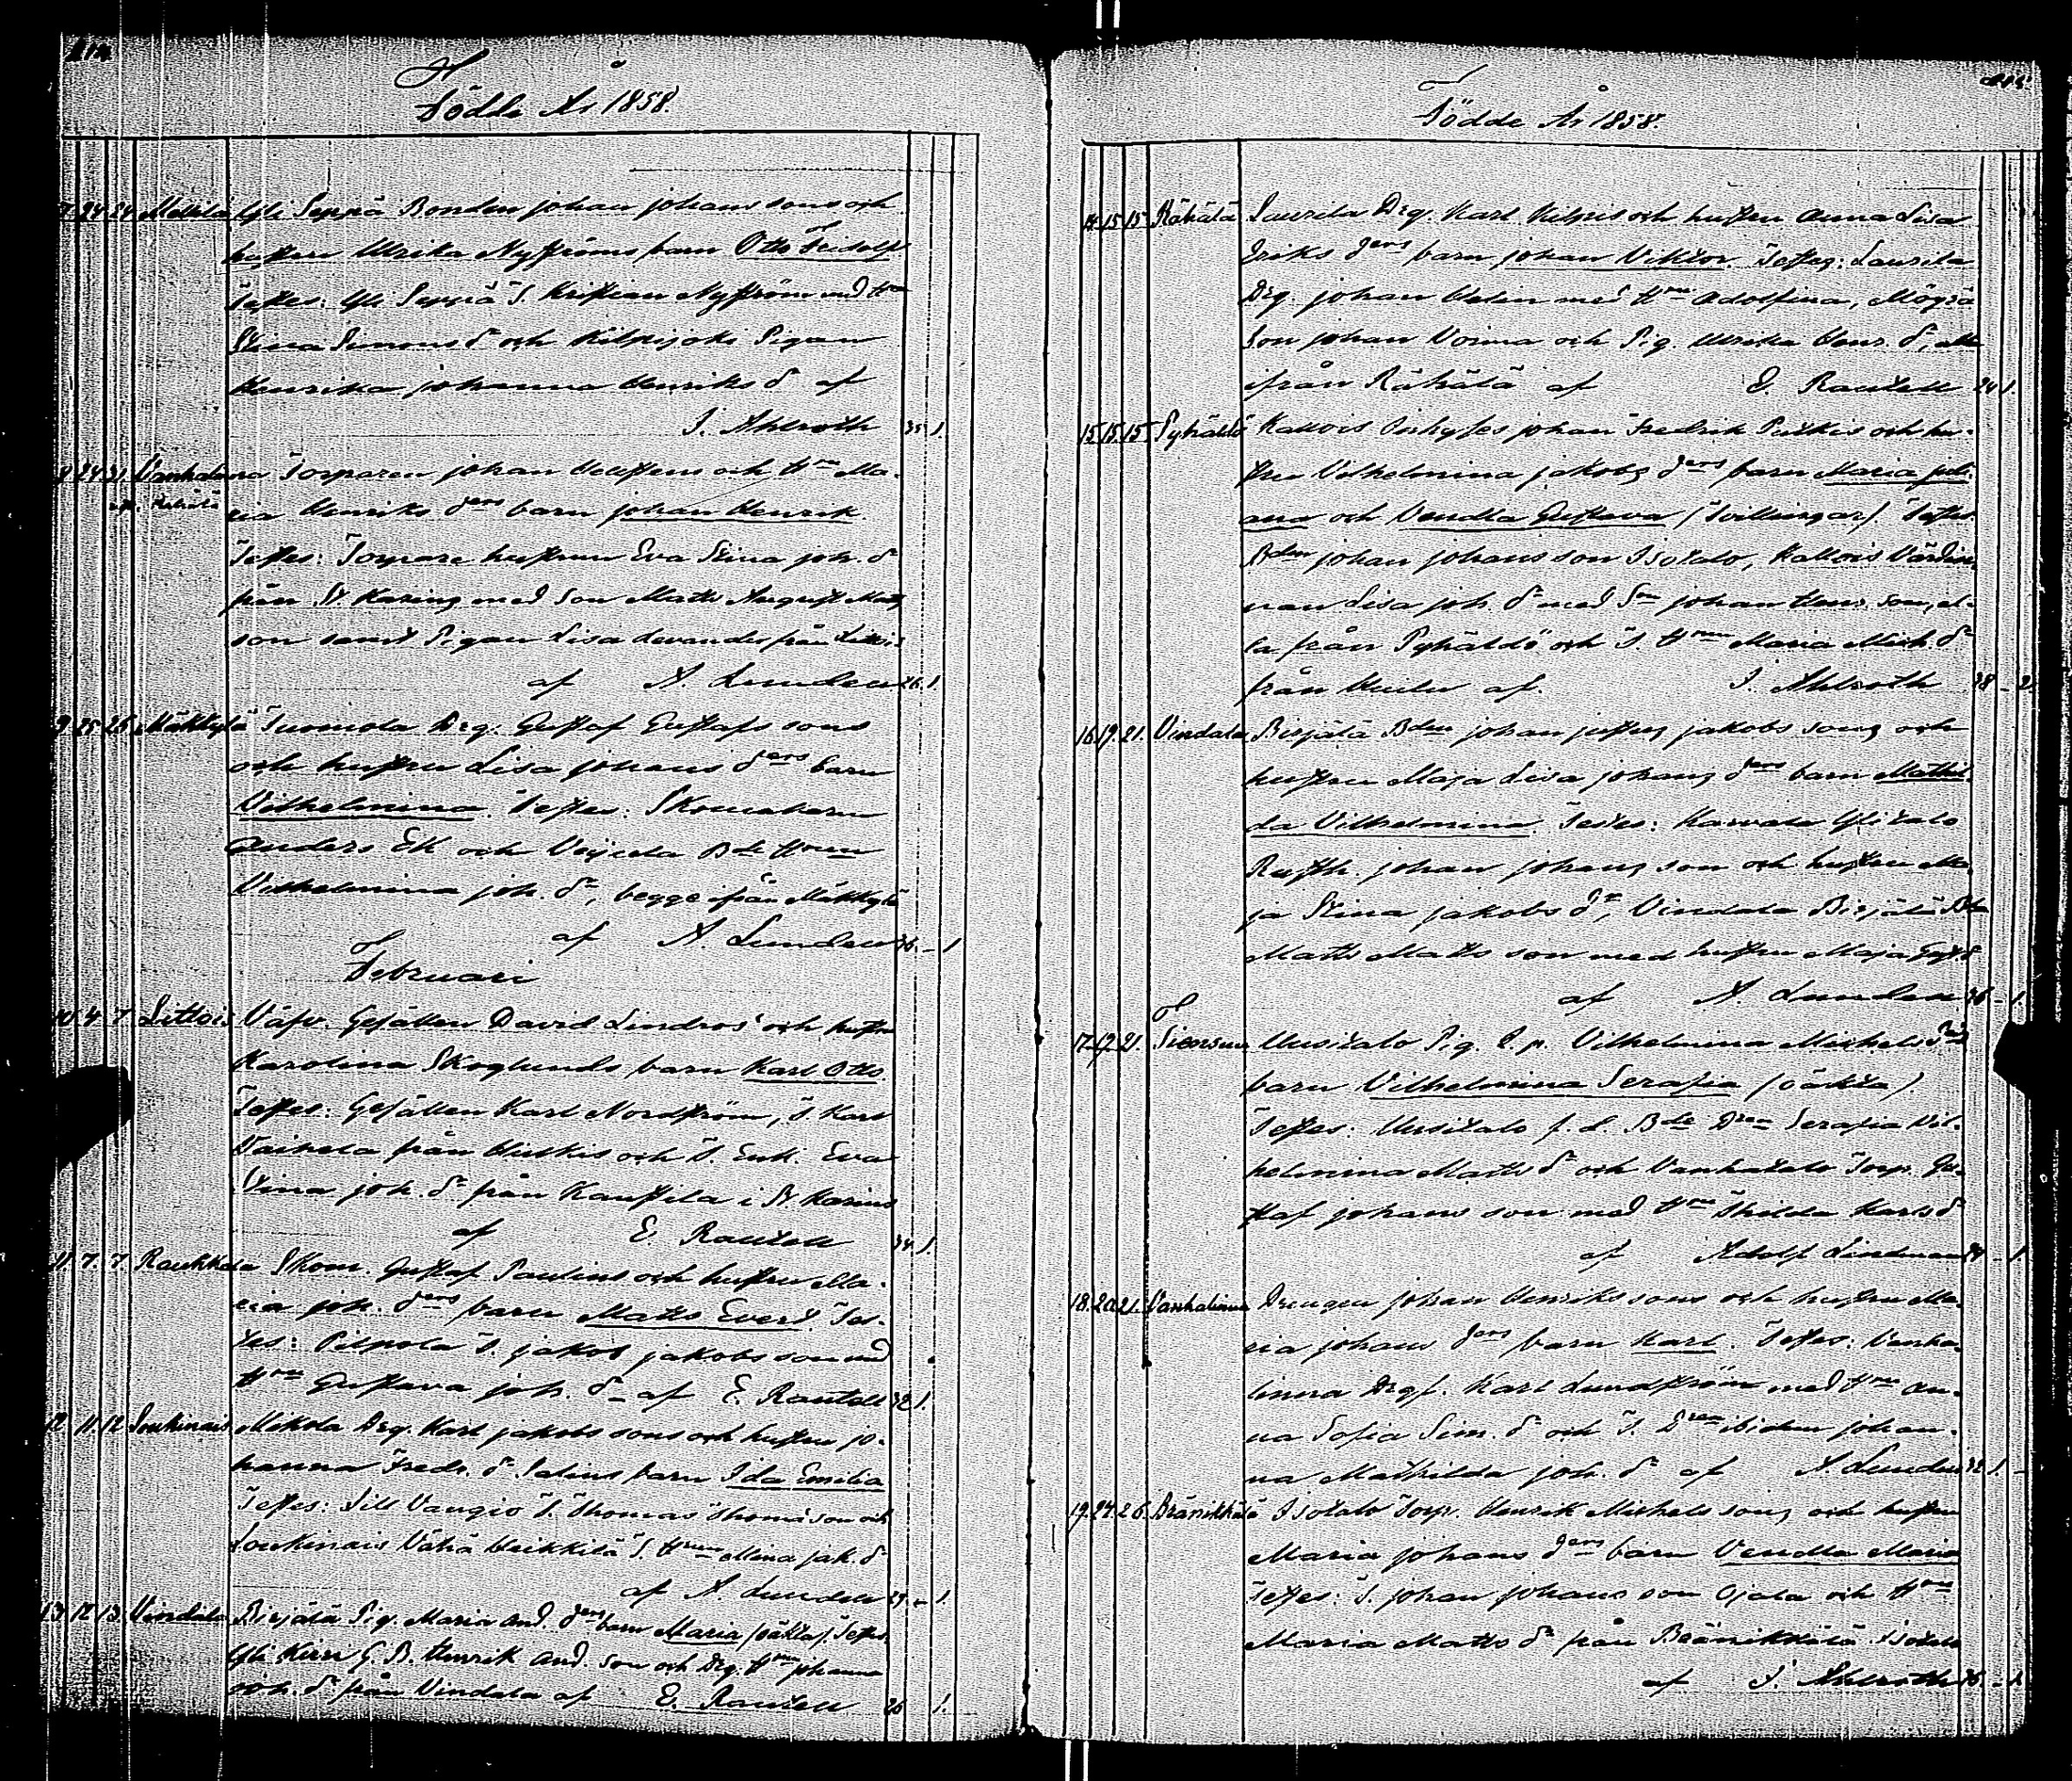 Födde År 1858.
7. 24. 24. Mellila Yli Seppä Bonden Johan Johans sons och
hustru Ulrika Nyströms barn Otto Fridolf
Testes: Yli Seppä T. Kristian Nyström med Hru
Stina Simons dr och Kilpijoki Pigan
Henrika Johanna Henriks dr af
J. Ahlroth 35. 1.
8. 24. 31. Vanhalinna Torparen Johan Hellstens och Hru Ma-
ria Henriks drs barn Johan Henrik.
Testes: Torpare hustrun Eva Stina Joh. dr
från St. Karins med Son Matts August Matts
son samt Pigan Lisa Levander från Littois
af A. Lunden 26. 1.
9. 25. 26. Mäkkylä Tuomola Drg. Gustaf Gustafs sons
och hustru Lisa Johans drs barn
Vilhelmina. Testes: Skomakarn
Anders Ek och Bde Hrun
Vilhelmina Joh. dr, begge ifrån Mäkkylä
af A. Lunden 36. - 1
Februari
10 4 7 Littois Väfv. Gesällen David Lindros' och hustru
Karolina Skoglunds barn Karl Otto.
Testes: Gesällen Karl Nordström, T. Karl
från och T. Enk. Eva
Stina Joh. dr från Kaustila i St. Karins
af E. Rautell 34. 1.
11. 7. 7. Raukkala Skom. Gustaf Paulins och hustru Ma-
ria Joh. drs barn Matts Evert. Tes-
tes: Pilpola T. Jakob Jakobs son med
Hru Gustava Joh. dr af E. Rautell 32 1.
12 11. 12 Loukinais Mikola Drg. Karl Jakobs sons och hustru Jo-
hanna Fredr. dr Salins barn Ida Emilia
Testes: Lill Vaugio T. Thomas Thomæ son och
Loukinais Vähä Heikkilä T. Hrun Mina Jak. dr
af A. Lunden 29. - 1.
13 12 13. Vindala Birjälä Pig. Maria And. drs barn Maria (oäkta). Testes:
Yli Kirri G. B. Henrik And. son och Drg. Hru Johanna
Joh. dr från Vindala af E. Rautell 26 1.
Födde År 1858.
14. 15. 15. Rähälä Laurila Drg. Karl Kilpis och hustru Anna Lisa
Eriks drs barn Johan Viktor. Testes: Laurila
Drg. Johan Helin med Hru Adolfina,
Son Johan Voima och Pig. Ulrika Henr. dr, alla
ifrån Rähälä af E. Rautell 24 1.
15. 15. 15. Pyhältö Kallois Inhyses Johan Fredrik Putkis och hu-
stru Vilhelmina Jakobs drs barn Maria Juli-
ana och Vendla Gustava (Tvillingar). Testes
Bden Johan Johans son Isotalo, Kallois Värdin-
nan Lisa Joh. dr med Sn Johan Henr. son, al-
la från Pyhältö och T. Hrun Maria Mich. dr
från af. J. Ahlroth 38 - 2.
16. 19. 21. Vindala Birjälä Bden Johan Justus Jakobs sons och
hustru Maja Lisa Johans drs barn Mathil-
da Vilhelmina. Testes: Karvala Ylitalo
Rusth. Johan Johans son och hustru Ma-
ja Stina Jakobs dr, Vindala Birjälä Bde
Matts Matts son med hustru Maja Gust. dr
af A. Lunden 36 - 1.
17. 17. 21. Uusitalo Pig. L. p. Vilhelmina Michels drs
barn Vilhelmina Serafia (oäkta)
Testes: Uusitalo f. d. Bde Dren Serafia Vil-
helmina Matts dr och Vanhatalo Torp. Gu-
staf Johans son med Hru Thilda Karls dr
af Adolf Lindman 27 - 1.
18. 20. 21. Vanhalinna Drengen Johan Henriks sons och hustru Ma-
ria Johans drs barn Karl. Testes: Vanha-
linna Drg. Karl Lundström med Hru An-
na Sofia Sim. dr och T. Dren ibidem Johan-
na Mathilda Joh. dr af A. Lunden 32 1.
19. 24. 26. Bränikkälä Isotalo Torp. Henrik Michels sons och hustru
Maria Johans drs barn Vendla Maria
Testes: T. Johan Johans son Ojala och Hru
Maria Matts dr från Bränikkälä Isotalo
af J. Ahlroth 36. - 1.